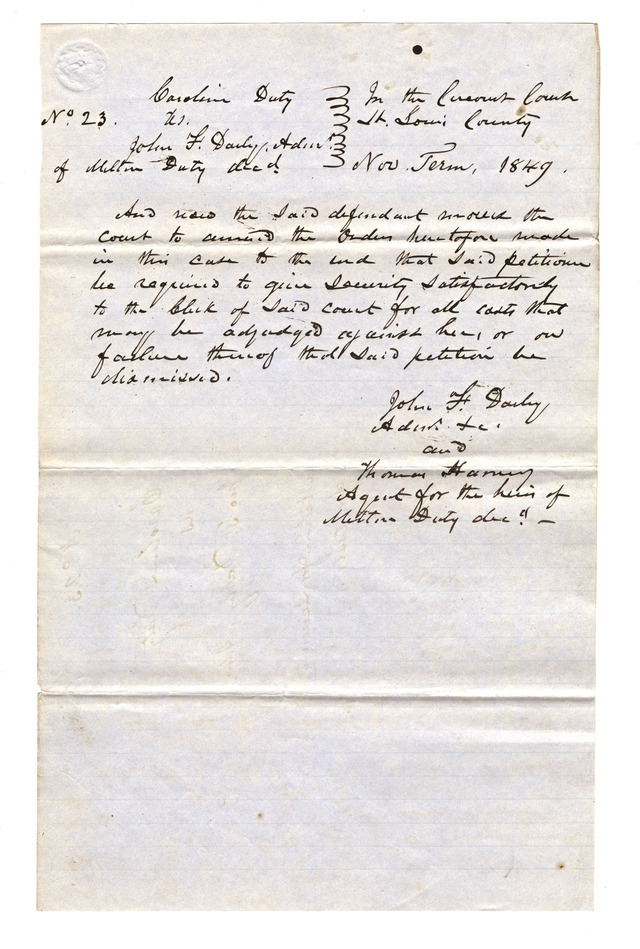 Caroline Duty
No. 23. vs.
John F. Darby, Admr.
of Milton Duty decd.
In the Circuit Court
St. Louis County
Nov. Term, 1849.
And now the said defendant moves the
court to amend the order heretofore made
in this case to the end that said petitioner
be required to give security satisfactorily
to the Clerk of said court for all costs that
may be adjudged against her, or on
failure thereof that said petition be
dismissed.
John F. Darby
Admr. &c.
and
Thomas Harney
Agent for the heirs of
Milton Duty decd. —